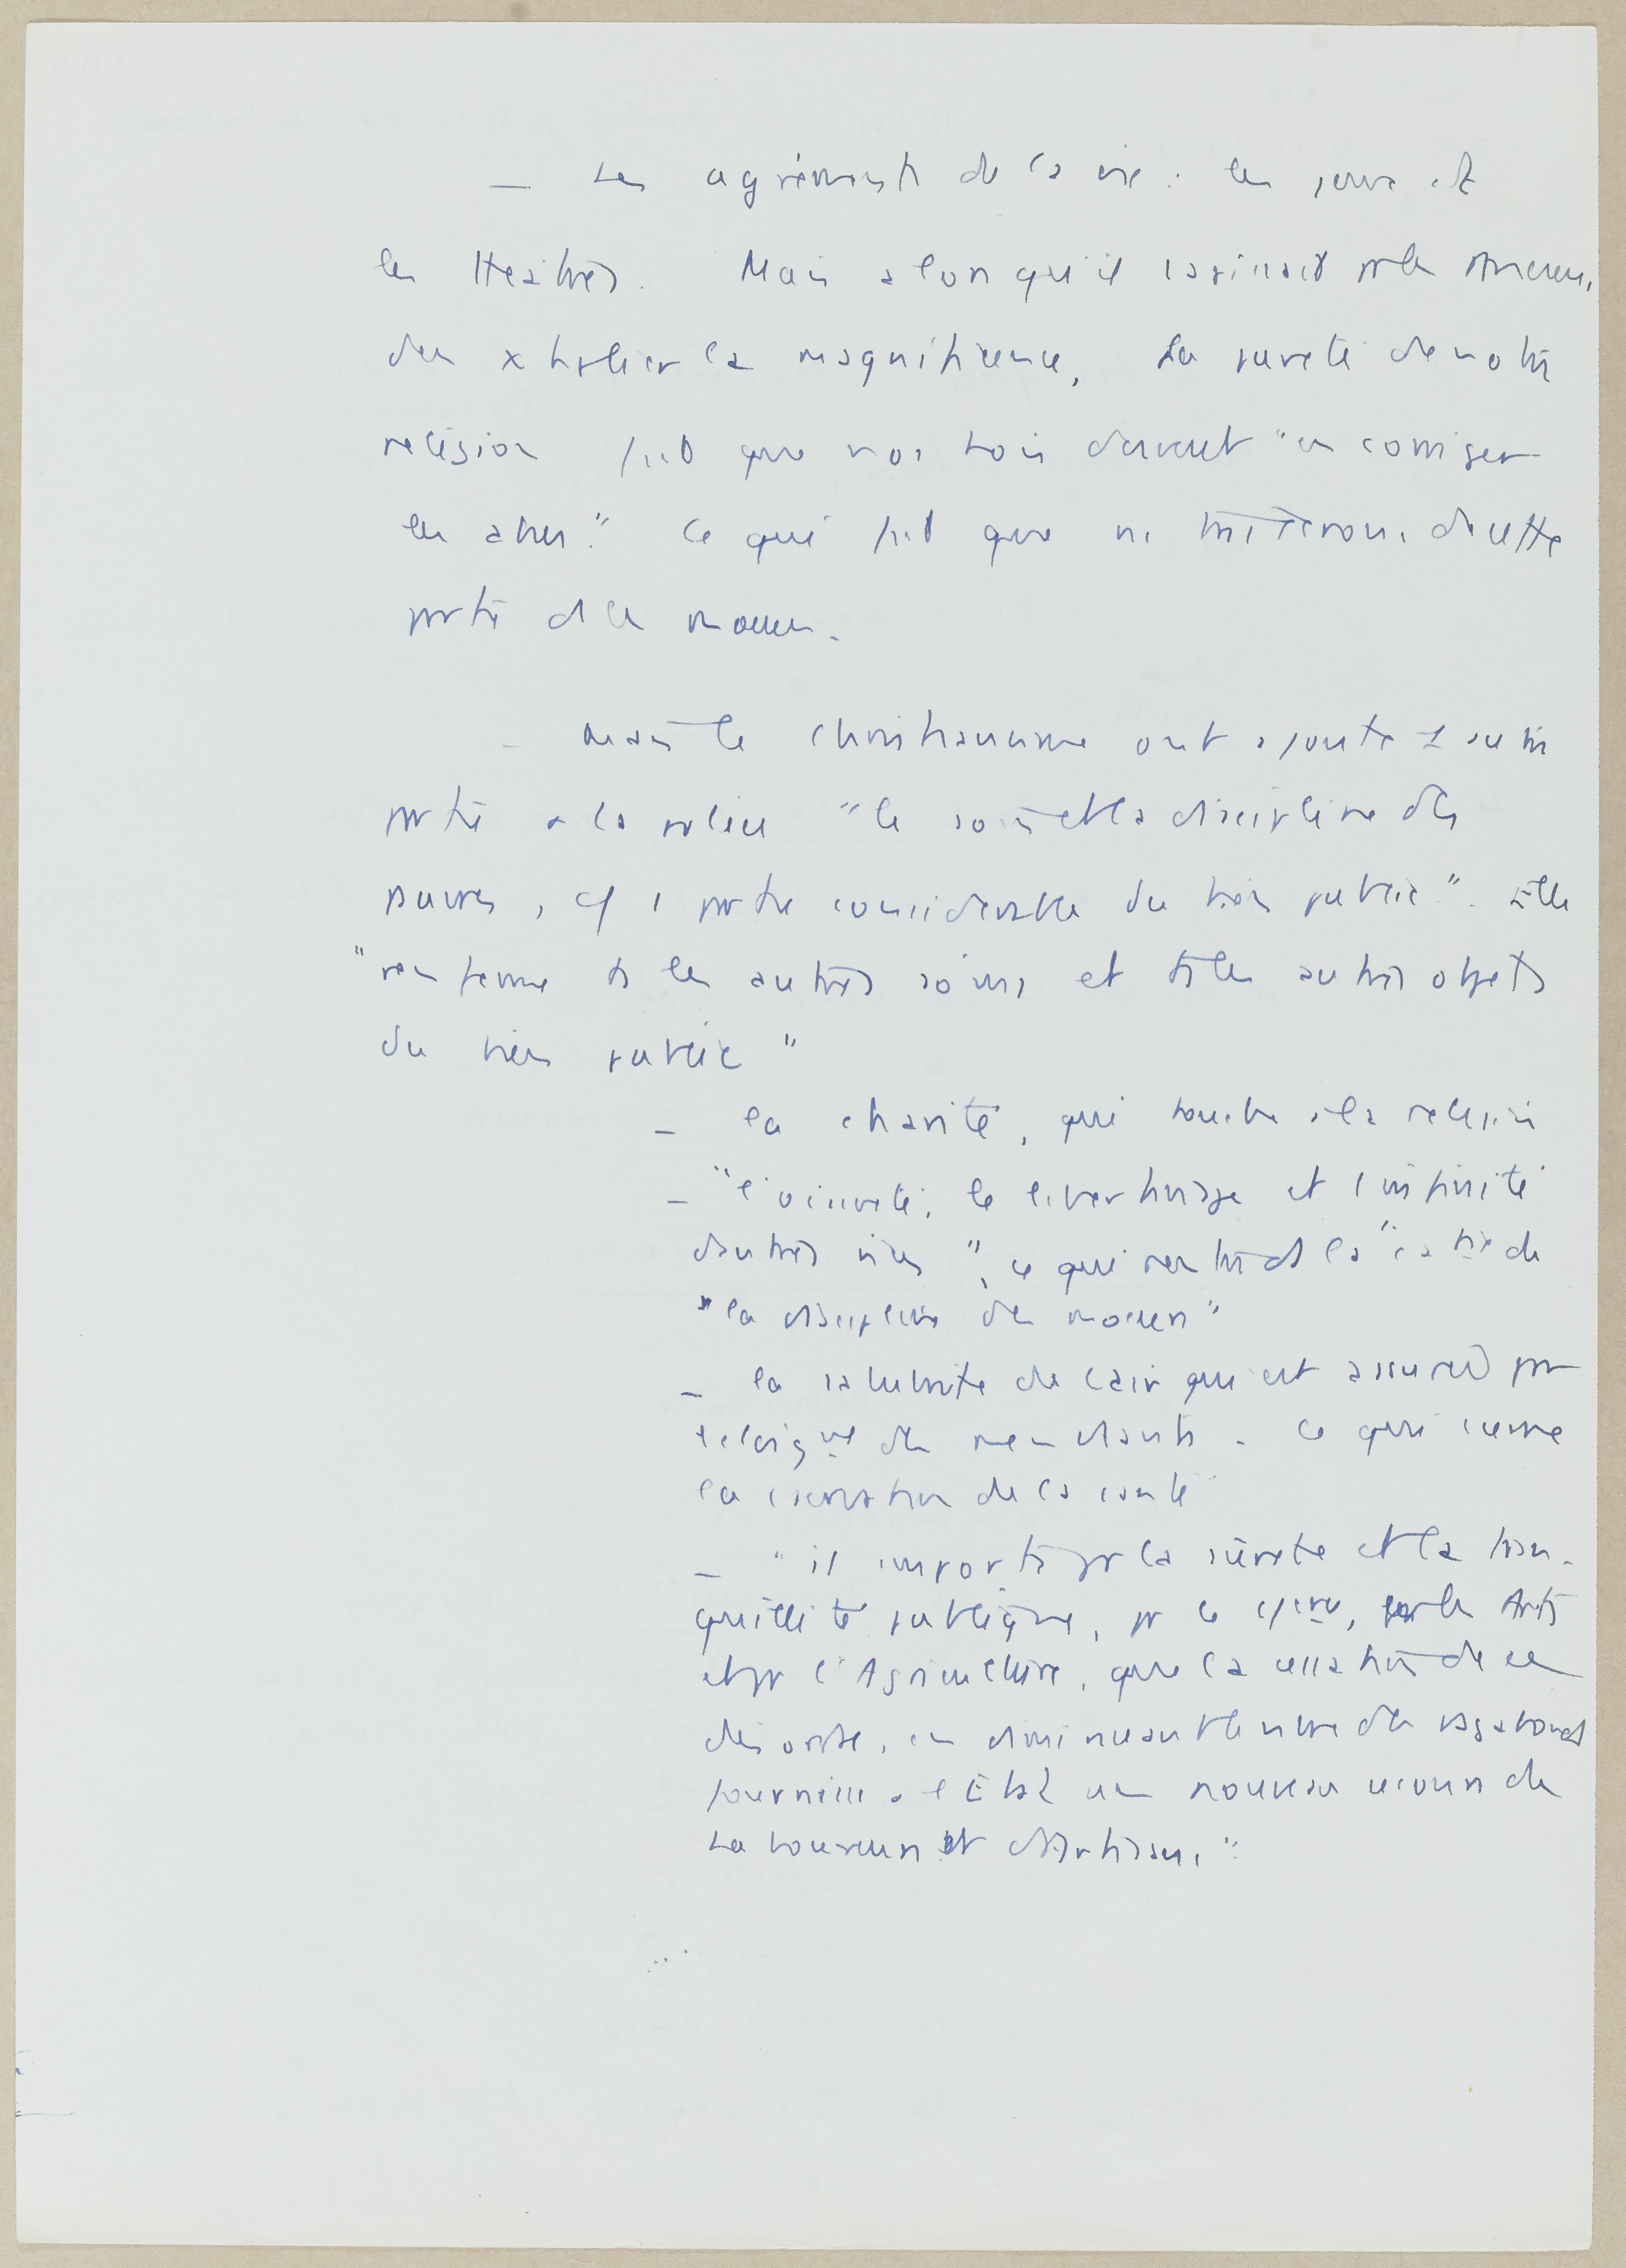 — Les agréments de la vie : les jeux et
les théâtres. Mais alors qu'il s'agissait pr les Anciens,
d'en xtplier la magnificence, La pureté de notre
religion fait que nos Lois doivent "en corriger
les abus." Ce qui fait que ns traiterons de cette
partie ds les moeurs.
- Mais le christianisme ont ajouté 1 autre
partie à la police "le soin et la discipline des
pauvres, c/ 1 partie considérable du bien public". Elle
"renferme ts les autres soins et ts les autres objets
du bien public"
— la charité, qui touche à la religion
— "l'oisiveté, le libertinage et l'infinité
d'autres vices", ce qui rentre ds la de
"la discipline des moeurs"
— la salubrité de l'air qui est assurée par
des mendiants. Ce qui
la conservation de la santé
— "il importe pr la sûreté et la tran-
quillité publique, pr le cmerce, pr les Arts
et pr l'Agriculture, que la cessation de ce
désordre, en diminuant le nbre des vagabonds
fournisse à l'Etat un nouveau secours de
Laboureurs et d'Artisans."